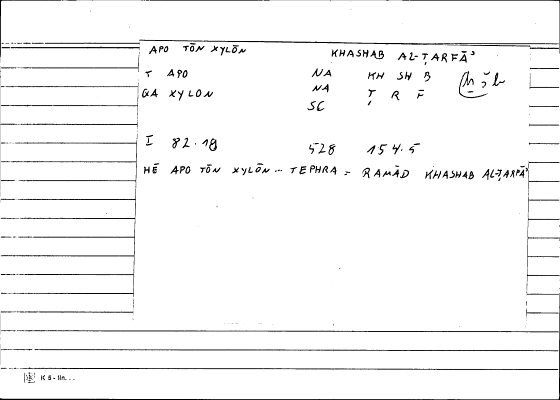 APO TŌN XYLŌN KHASHAB AL-ṬARFĀʾ
T APO NA KH SH B
GA XYLON NA Ṭ R F
SC
I 82.18 528 154.5
HĒ APO TŌN XYLŌN... TEPHRA = RAMĀD KHASHAB AL-ṬARFĀʾ
K 5 - lin...